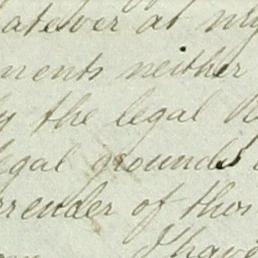 atever at my
ments neither
the legal
legal grounds
rrender of this
I have